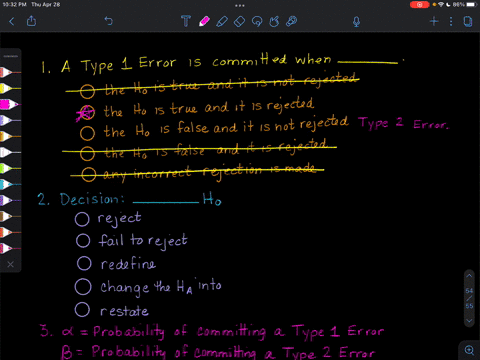 10:32 PM Thu Apr 28
86%
1. A Type 1 Error is committed when ________.
the H₀ is true and it is not rejected
the H₀ is true and it is rejected
the H₀ is false and it is not rejected Type 2 Error.
the H₀ is false and it is rejected
any incorrect rejection is made
2. Decision: ________ H₀
reject
fail to reject
redefine
change the Hᴀ into
restate
54
55
3. α = Probability of committing a Type 1 Error
β = Probability of committing a Type 2 Error